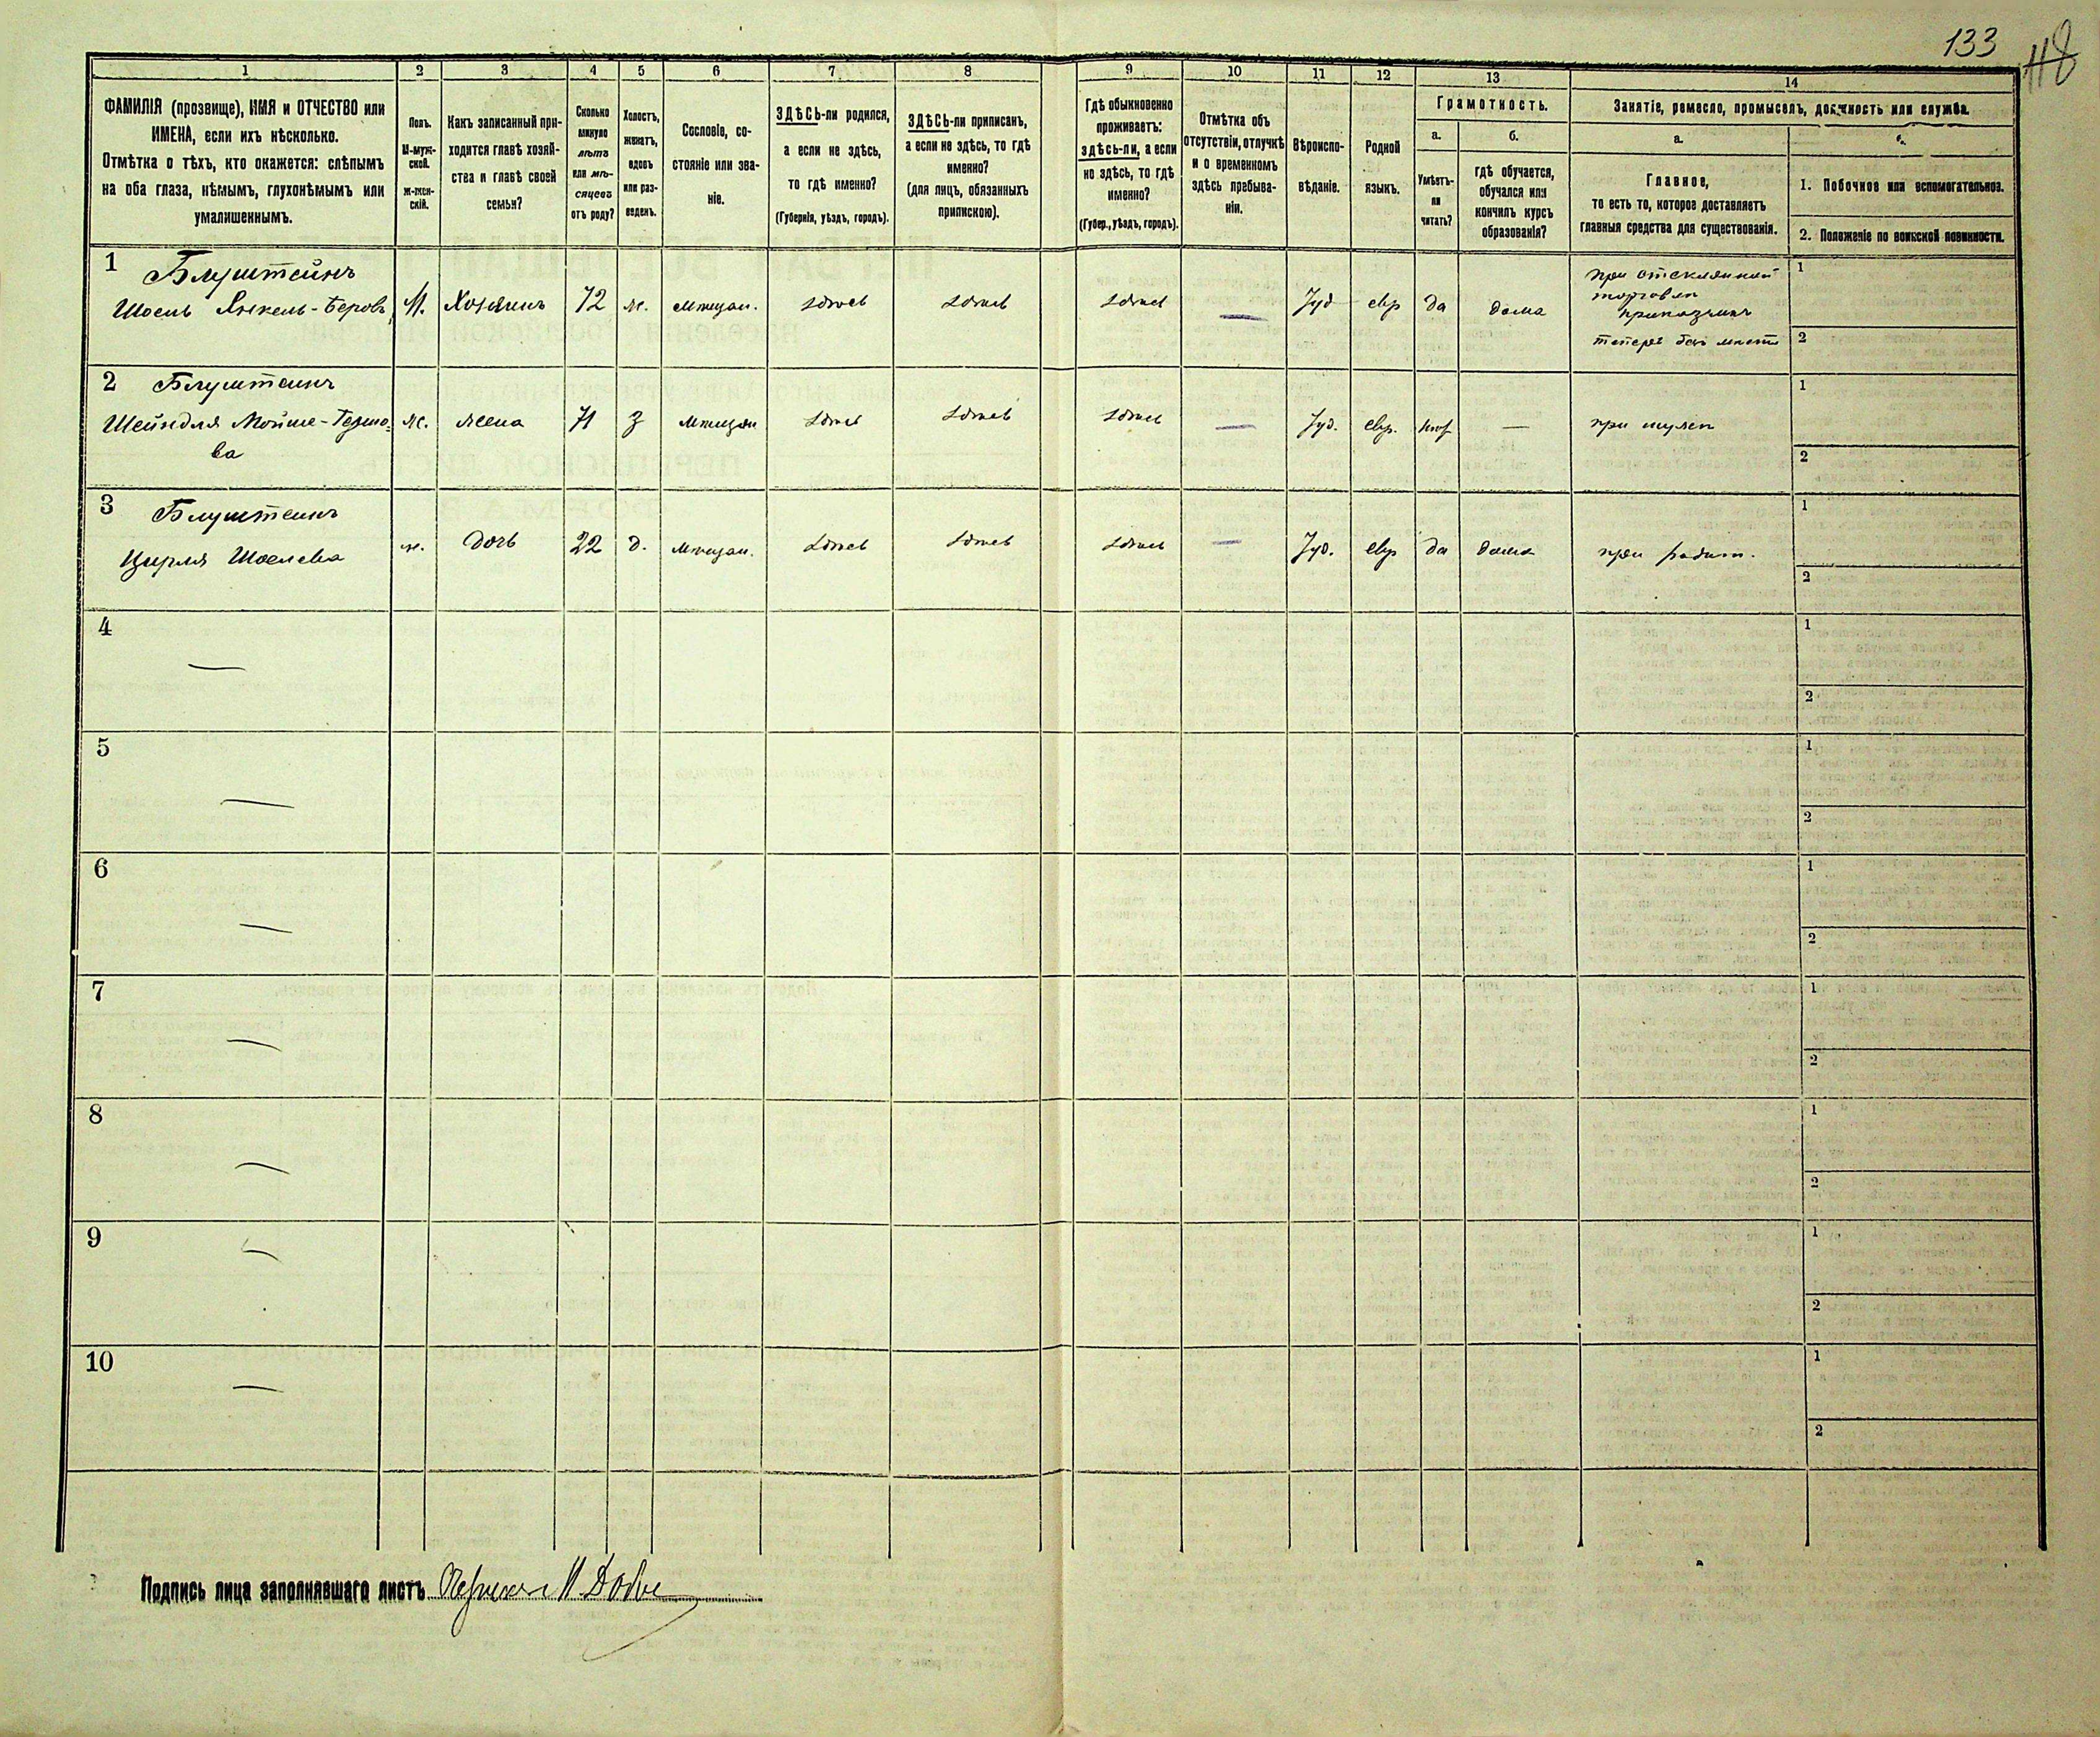 133
118
1
2
3
4
5
6
7
8
9
10
11
12
13
14
ФАМИЛІЯ (прозвище), ИМЯ и ОТЧЕСТВО или
ИМЕНА, если ихъ нѣсколько.
Отмѣтка о тѣхъ, кто окажется: слѣпымъ
на оба глаза, нѣмымъ, глухонѣмымъ или
умалишеннымъ.
Полъ.
М-муж-
ской.
Ж-жен-
скій.
Какъ записанный при-
ходится главѣ хозяй-
ства и главѣ своей
семьи?
Сколько
минуло
лѣтъ
или мѣ-
сяцевъ
отъ роду?
Холостъ,
женатъ,
вдовъ
или раз-
веденъ.
Сословіе, со-
стояніе или зва-
ніе.
ЗДѢСЬ-ли родился,
а если не здѣсь,
то гдѣ именно?
(Губернія, уѣздъ, городъ).
ЗДѢСЬ-ли приписанъ,
а если не здѣсь, то гдѣ
именно?
(для лицъ, обязанныхъ
припискою).
Гдѣ обыкновенно
проживаетъ:
здѣсь-ли, а если
не здѣсь, то гдѣ
именно?
(Губер., уѣздъ, городъ).
Отмѣтка объ
отсутствіи, отлучкѣ
и о временномъ
здѣсь пребыва-
ніи.
Вѣроиспо-
вѣданіе.
Родной
языкъ.
Грамотность.
а.
Умѣетъ-
ли
читать?
б.
гдѣ обучается,
обучался или
кончилъ курсъ
образованія?
Занятіе, ремесло, промыселъ, должность или служба.
а.
Главное,
то есть то, которое доставляетъ
главныя средства для существованія.
1. Побочное или вспомогательное.
2. Положеніе по воинской повинности.
1
Блуштейнъ
Шоель Янкель-Беровъ
М.
Хозяинъ
72
ж.
мѣщан.
здѣсь
здѣсь
здѣсь
—
Іуд
евр
да
дома
торговли
приказчикъ
теперь безъ мѣста
1
2
2
Блуштейнъ
Шейндля Мойше-
ва
ж.
жена
71
З
мѣщан
здѣсь
здѣсь
здѣсь
—
Іуд.
евр.
нѣт
—
при мужѣ
1
2
3
Блуштейнъ
Цирля Шоелева
ж.
дочь
22
д.
мѣщан.
здѣсь
здѣсь
здѣсь
—
Іуд.
евр
да
дома
при родит.
1
2
4
—
1
2
5
—
1
2
6
—
1
2
7
—
1
2
8
—
1
2
9
—
1
2
10
—
1
2
Подпись лица заполнявшаго листъ